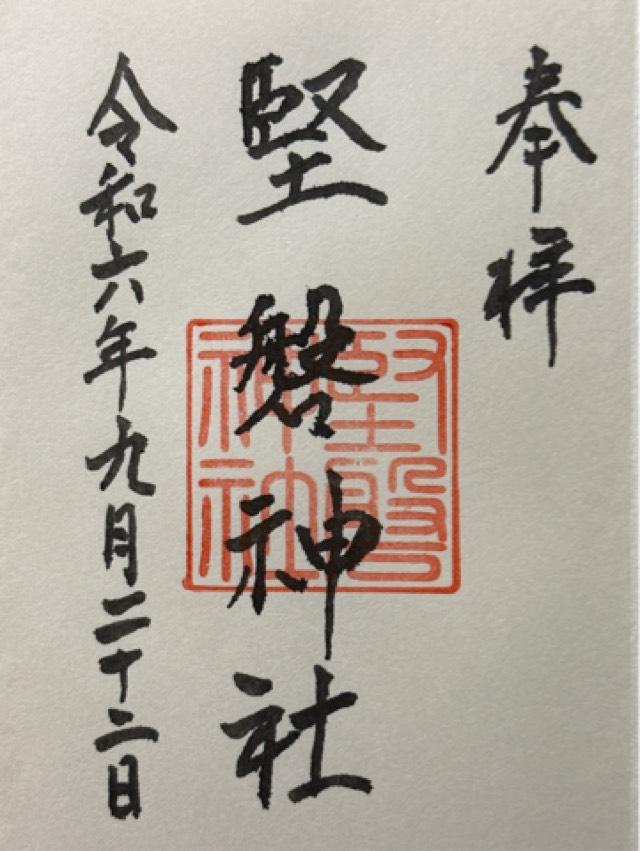 奉拝
堅磐神社
堅磐神社
令和六年九月二十二日